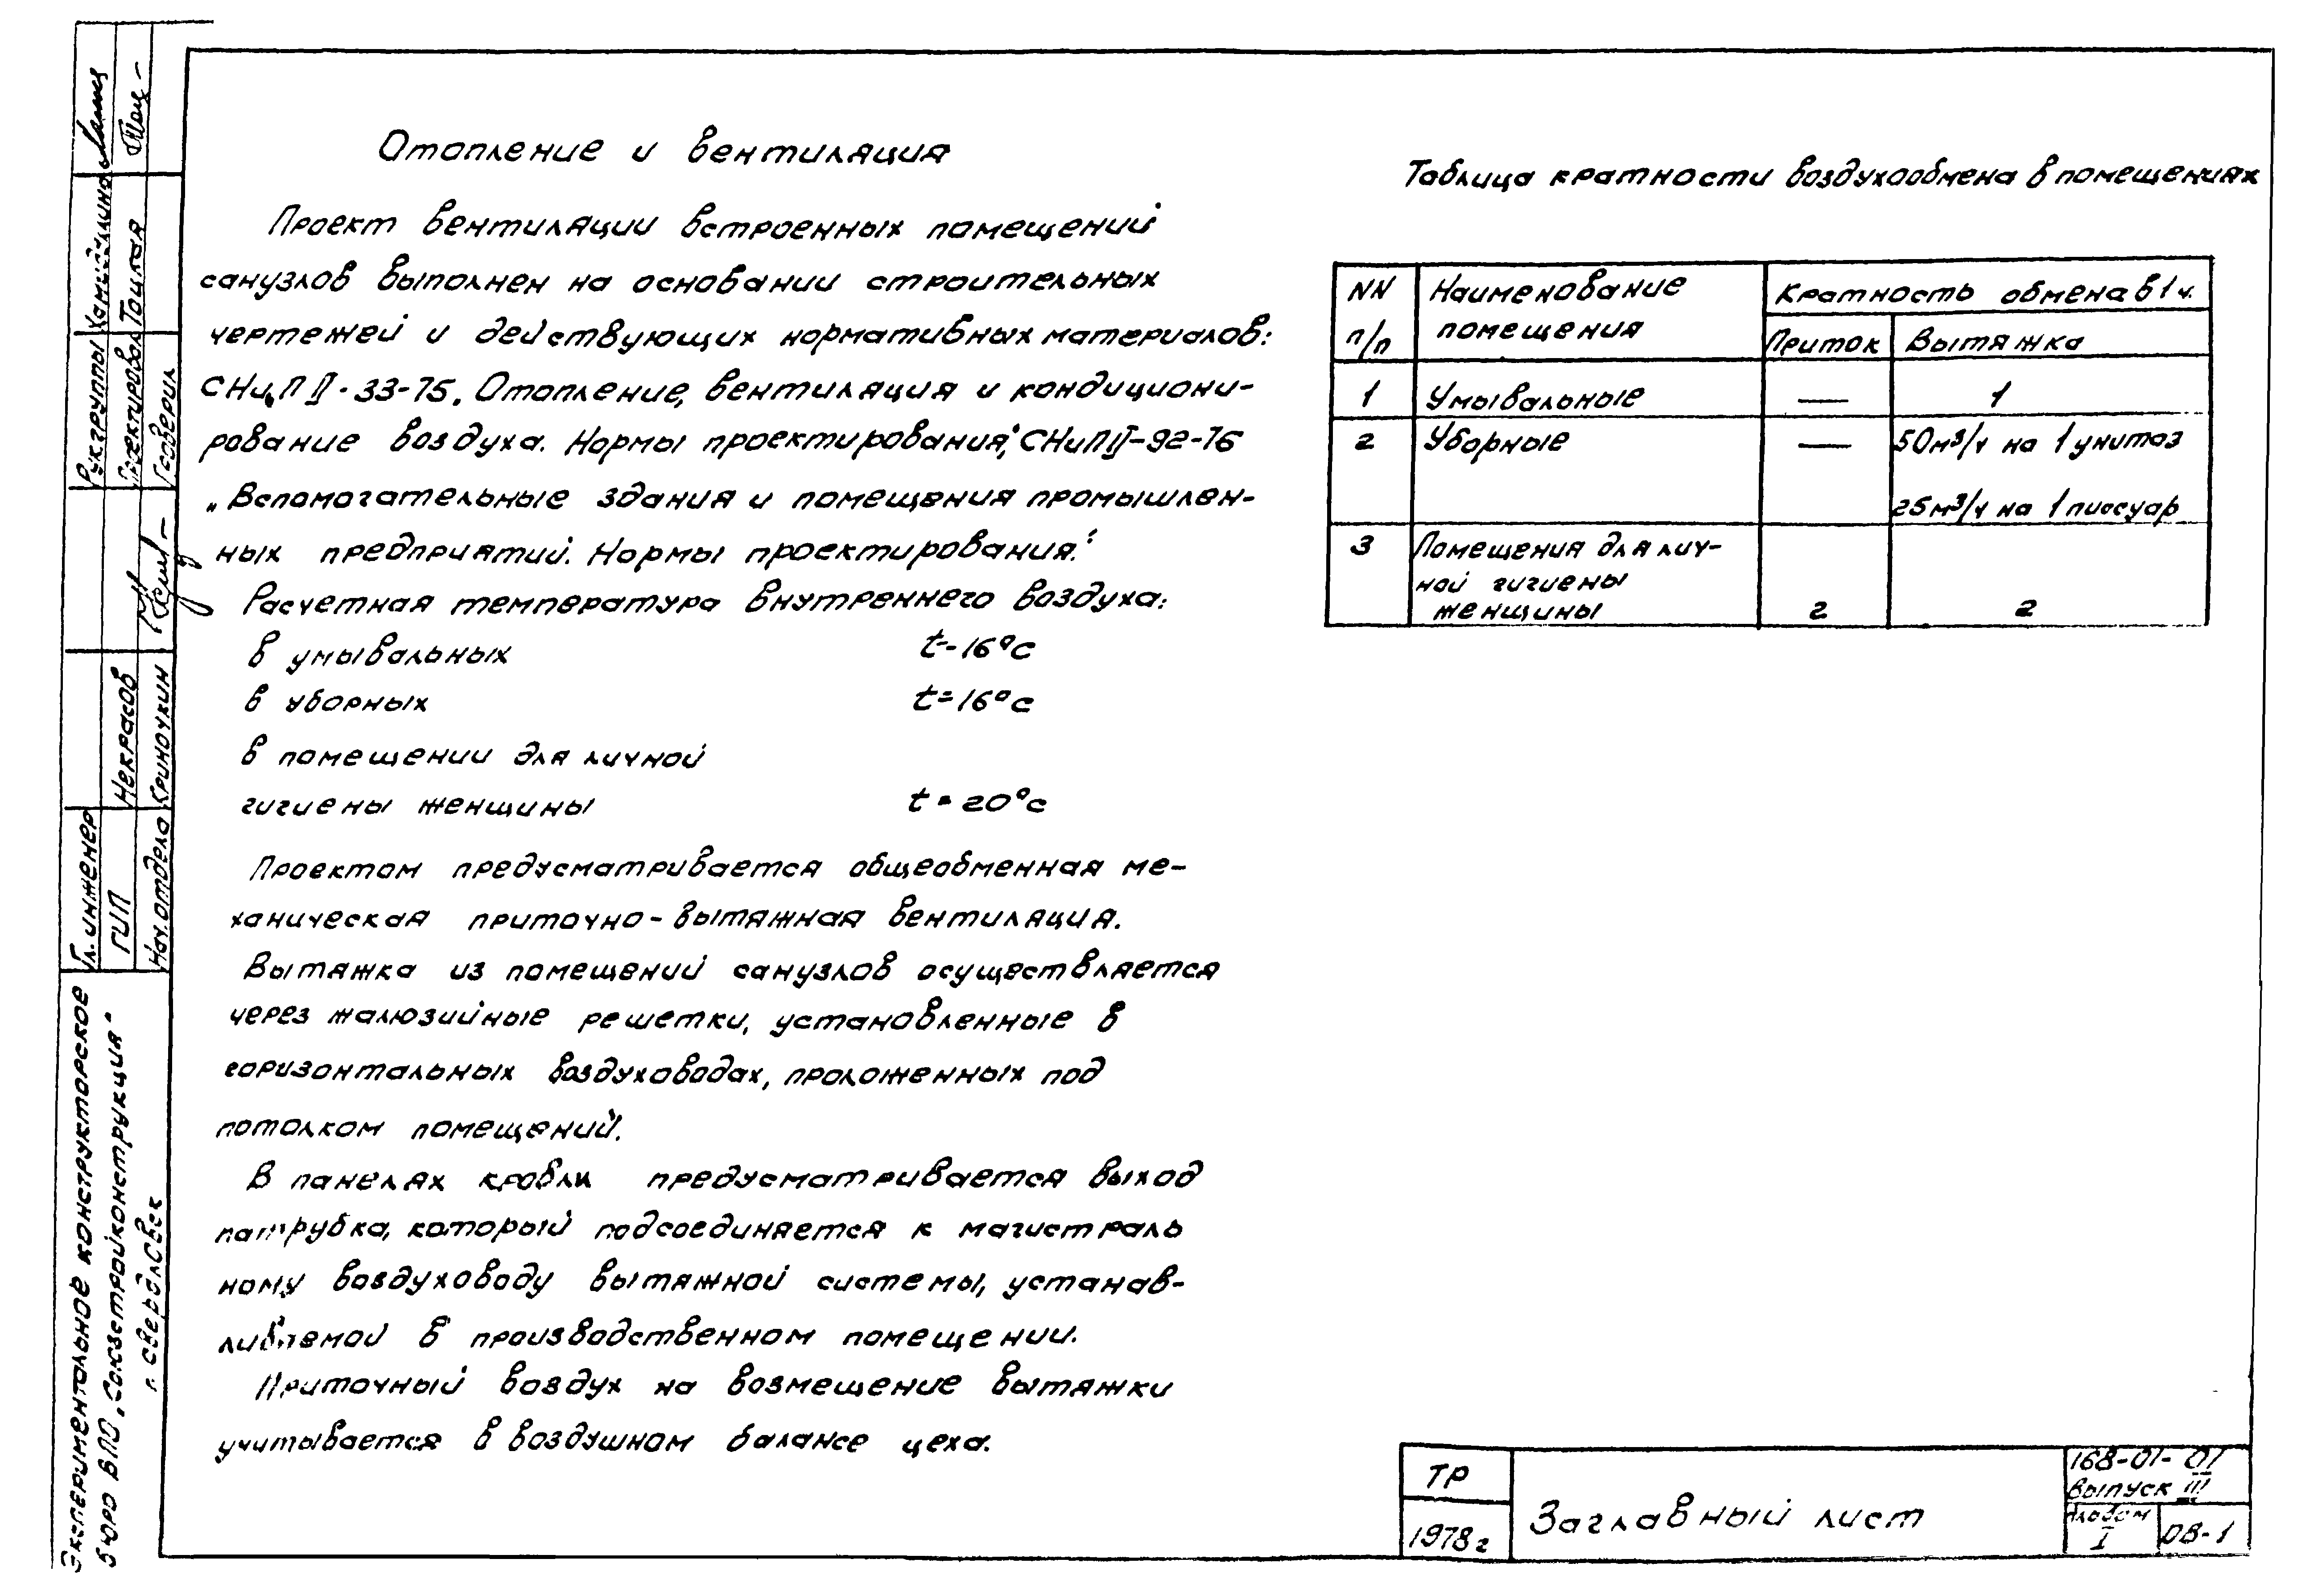 Отопление и вентиляция
Проект вентиляции встроенных помещений
санузлов выполнен на основании строительных
чертежей и действующих нормативных материалов:
СНиП II-33-75. Отопление, вентиляция и кондициони-
рование воздуха. Нормы проектирования", СНиП II-92-76
„Вспомогательные здания и помещения промышлен-
ных предприятий. Нормы проектирования."
Расчетная температура внутреннего воздуха:
в умывальных t=16°С
в уборных t=16°С
в помещении для личной
гигиены женщины t=20°С
Проектом предусматривается общеобменная ме-
ханическая приточно-вытяжная вентиляция.
Вытяжка из помещений санузлов осуществляется
через жалюзийные решетки, установленные в
горизонтальных воздуховодах, проложенных под
потолком помещений.
В панелях кровли предусматривается выход
патрубка, который подсоединяется к магистраль
ному воздуховоду вытяжной системы, устанав-
ливаемой в производственном помещении.
Приточный воздух на возмещение вытяжки
учитывается в воздушном балансе цеха.
Таблица кратности воздухообмена в помещениях
NN п/п Наименование помещения Кратность обмена в 1 ч.
Приток Вытяжка
1 Умывальные — 1
2 Уборные — 50м³/ч на 1 унитаз
25м³/ч на 1 писсуар
3 Помещения для лич-
ной гигиены
женщины 2 2
ТР
1978г
Заглавный лист
168-01-01
выпуск III
Альбом
I
ОВ-1
Рук.группы
Проектировал Тоцкая
Проверил
Гл. инженер
ГИП Некрасов
Нач. отдела Криночкин
Экспериментальное конструкторское
бюро ВПО „Союзстройконструкция"
г. Свердловск